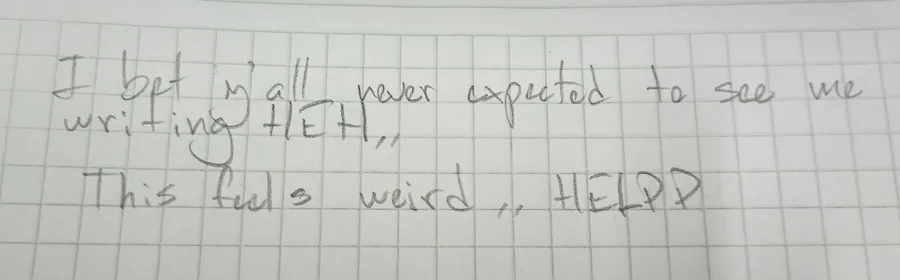 I bet y'all never expected to see me
writing HEH,,
This feels weird ,, HELPP